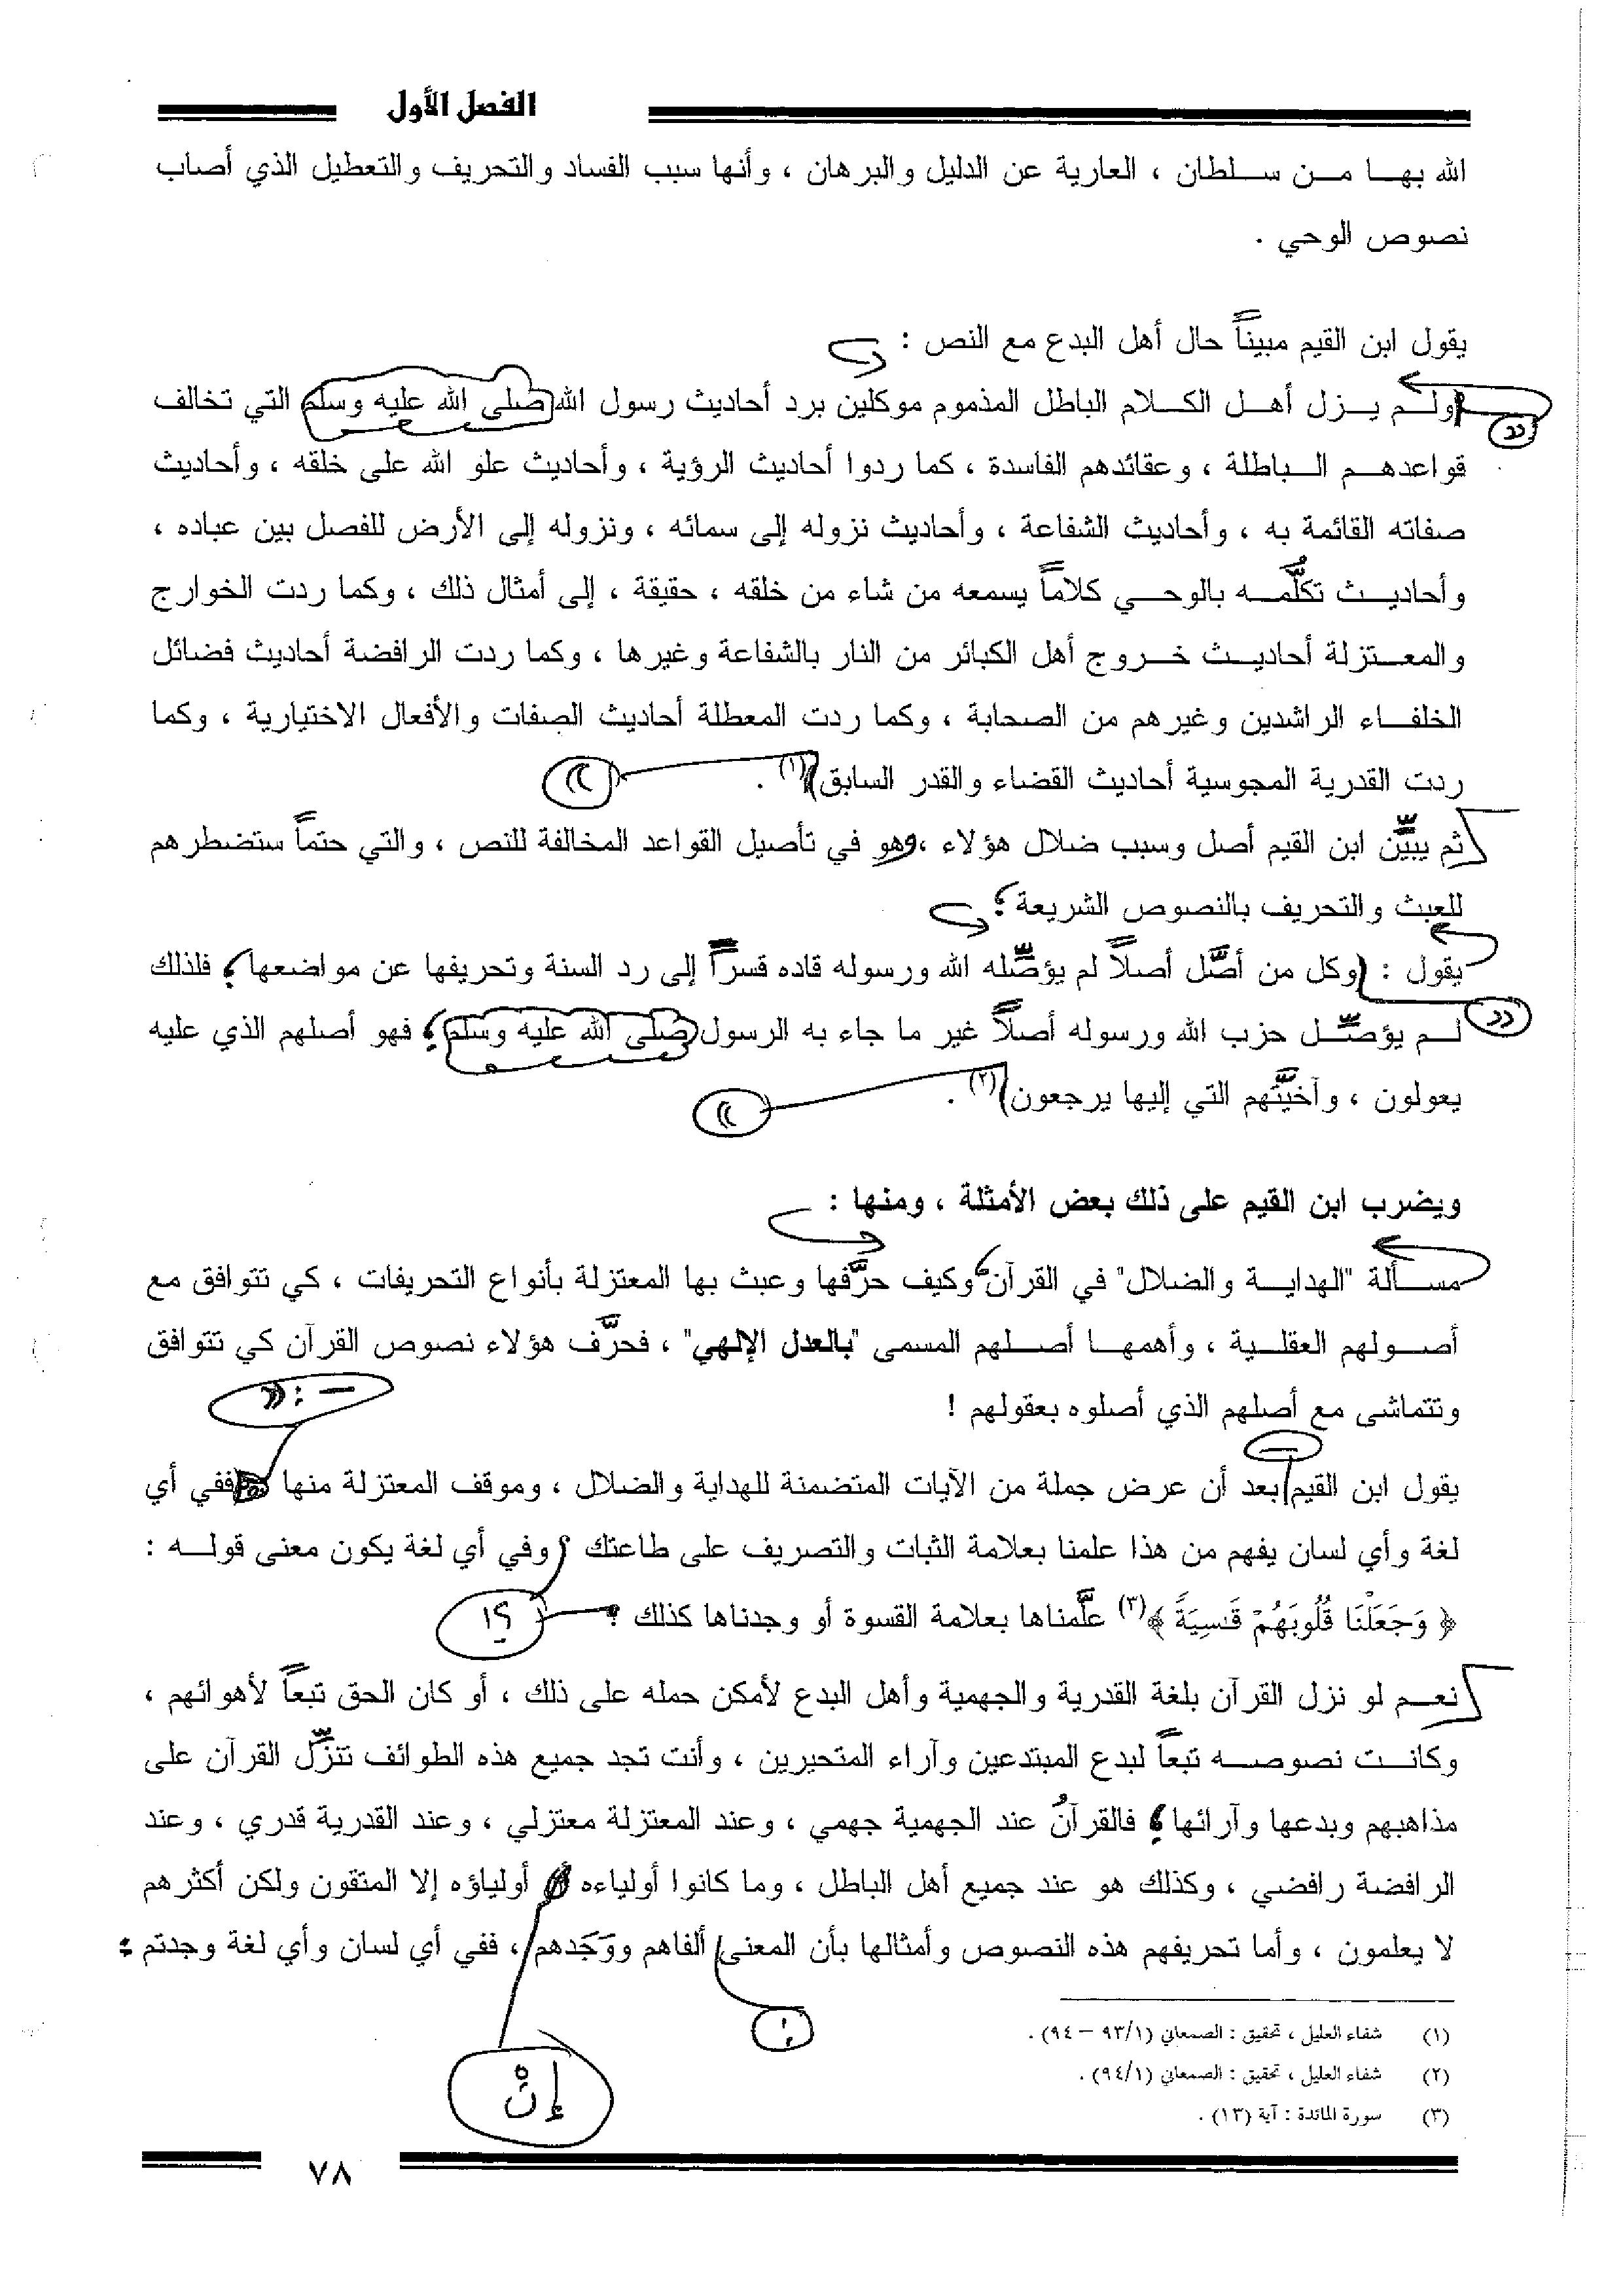 الفصل الأول
الله بها من سلطان ، العارية عن الدليل والبرهان ، وأنها سبب الفساد والتحريف والتعطيل الذي أصاب
نصوص الوحي .
يقول ابن القيم مبيناً حال أهل البدع مع النص :
(ولم يزل أهل الكلام الباطل المذموم موكلين برد أحاديث رسول الله صلى الله عليه وسلم التي تخالف
((
قواعدهم الباطلة ، وعقائدهم الفاسدة ، كما ردوا أحاديث الرؤية ، وأحاديث علو الله على خلقه ، وأحاديث
صفاته القائمة به ، وأحاديث الشفاعة ، وأحاديث نزوله إلى سمائه ، ونزوله إلى الأرض للفصل بين عباده ،
وأحاديث تكلُّمه بالوحي كلاماً يسمعه من شاء من خلقه ، حقيقة ، إلى أمثال ذلك ، وكما ردت الخوارج
والمعتزلة أحاديث خروج أهل الكبائر من النار بالشفاعة وغيرها ، وكما ردت الرافضة أحاديث فضائل
الخلفاء الراشدين وغيرهم من الصحابة ، وكما ردت المعطلة أحاديث الصفات والأفعال الاختيارية ، وكما
ردت القدرية المجوسية أحاديث القضاء والقدر السابق)(١) .
))
ثم يبيِّن ابن القيم أصل وسبب ضلال هؤلاء ، وهو في تأصيل القواعد المخالفة للنص ، والتي حتماً ستضطرهم
للعبث والتحريف بالنصوص الشريعة ؛
يقول : (وكل من أصَّل أصلاً لم يؤصِّله الله ورسوله قاده قسراً إلى رد السنة وتحريفها عن مواضعها ؛ فلذلك
((
لم يؤصِّل حزب الله ورسوله أصلاً غير ما جاء به الرسول صلى الله عليه وسلم ؛ فهو أصلهم الذي عليه
يعولون ، وآخيَّتهم التي إليها يرجعون)(٢) .
))
ويضرب ابن القيم على ذلك بعض الأمثلة ، ومنها :
مسألة "الهداية والضلال" في القرآن ، وكيف حرَّفها وعبث بها المعتزلة بأنواع التحريفات ، كي تتوافق مع
أصولهم العقلية ، وأهمها أصلهم المسمى "بالعدل الإلهي" ، فحرَّف هؤلاء نصوص القرآن كي تتوافق
وتتماشى مع أصلهم الذي أصلوه بعقولهم !
– : ((
–
يقول ابن القيم بعد أن عرض جملة من الآيات المتضمنة للهداية والضلال ، وموقف المعتزلة منها ففي أي
لغة وأي لسان يفهم من هذا علمنا بعلامة الثبات والتصريف على طاعتك ؟ وفي أي لغة يكون معنى قوله :
﴿ وَجَعَلْنَا قُلُوبَهُمْ قَسِيَةً ﴾(٣) علَّمناها بعلامة القسوة أو وجدناها كذلك ؟
؟!
نعم لو نزل القرآن بلغة القدرية والجهمية وأهل البدع لأمكن حمله على ذلك ، أو كان الحق تبعاً لأهوائهم ،
وكانت نصوصه تبعاً لبدع المبتدعين وآراء المتحيرين ، وأنت تجد جميع هذه الطوائف تنزِّل القرآن على
مذاهبهم وبدعها وآرائها ؛ فالقرآنُ عند الجهمية جهمي ، وعند المعتزلة معتزلي ، وعند القدرية قدري ، وعند
الرافضة رافضي ، وكذلك هو عند جميع أهل الباطل ، وما كانوا أولياءه أولياؤه إلا المتقون ولكن أكثرهم
لا يعلمون ، وأما تحريفهم هذه النصوص وأمثالها بأن المعنى ألفاهم ووَجَدهم ، ففي أي لسان وأي لغة وجدتم :
:
إنْ
(١) شفاء العليل ، تحقيق : الصمعاني (٩٣/١ – ٩٤) .
(٢) شفاء العليل ، تحقيق : الصمعاني (٩٤/١) .
(٣) سورة المائدة : آية (١٣) .
٧٨